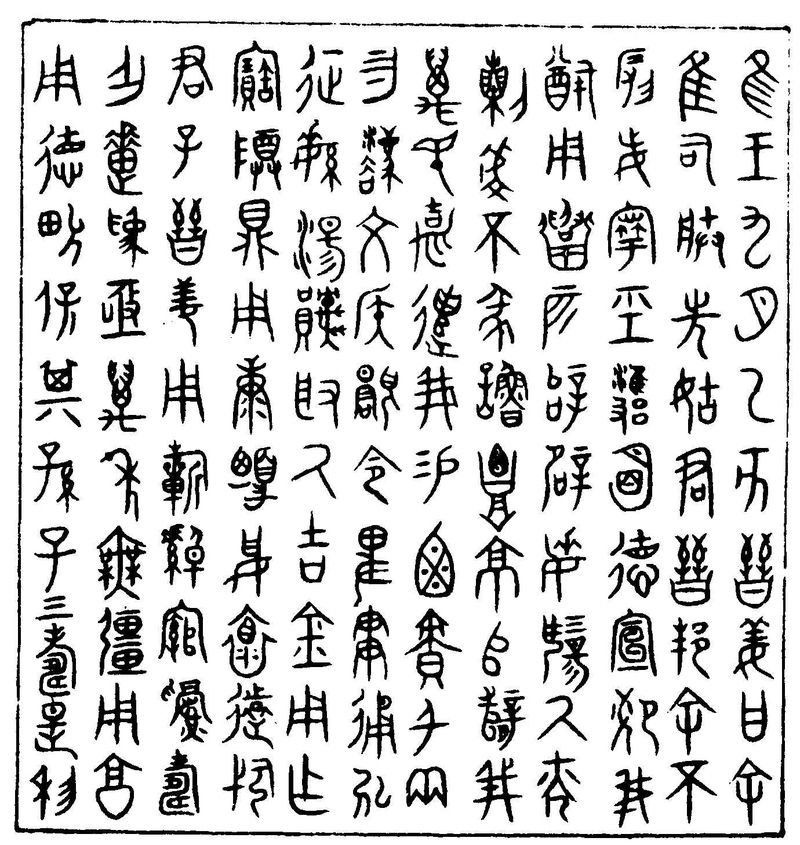 隹王九月乙亥晉姜曰余
隹司朕先姑君晉邦余不
叚妄寧巠雝明德宣卹我
猷用召匹辝辟每揚氒光
剌虔不㒸魯覃京𠂤辥我
萬民嘉遣我易鹵賁千兩
勿灋文侯顯令卑貫通弘
征繁湯原取氒吉金用乍
寶尊鼎用康柔妥懷遠邇
君子晉姜用旂綽綰眉壽
乍疐爲亟萬年無疆用享
用德畯保其孫子三壽是利